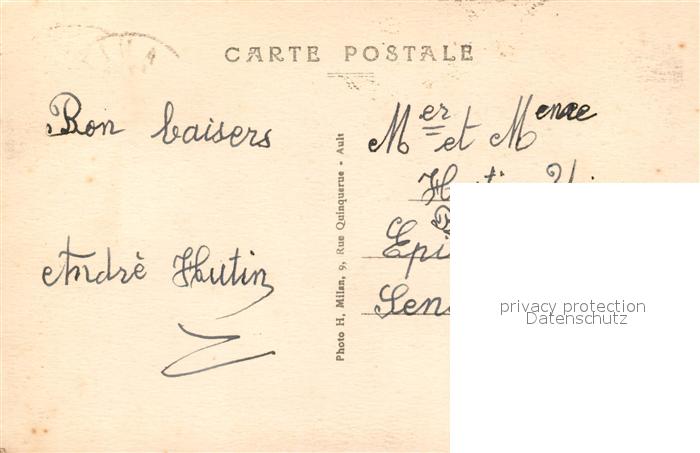 CARTE POSTALE
Bon baisers
André Hutin
Photo H. Milan, 9, Rue Quinquerue - Ault
Mer et Menre
privacy protection
Datenschutz